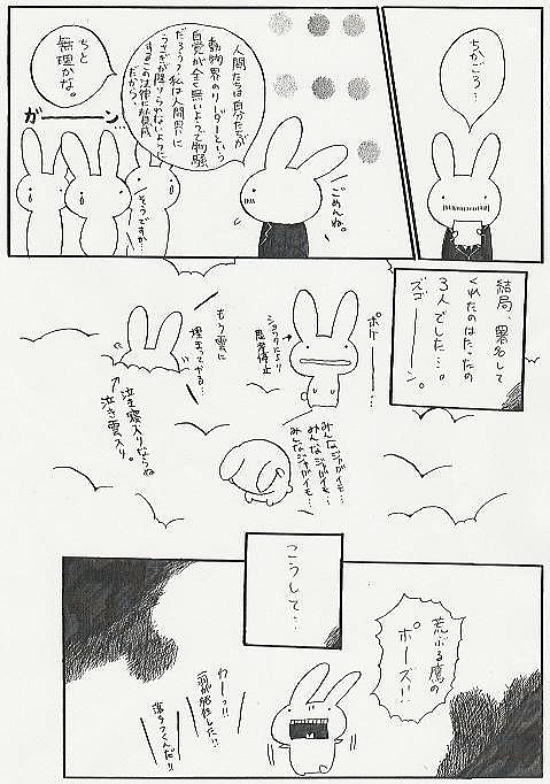 ちかごろ…
人間たちは自分たちが
動物界のリーダーという
自覚が全く無いようで物騒
だろう？私は人間界に
うさぎが降りられないように
するこの法律に賛成
だから。
ちと
無理かな。
ごめんね。
ガーーーン…
そうですか…
結局、署名して
くれたのはたったの
3人でした…。
ズゴーーーン。
ポケーーー…
ショックにより
思考停止
もう雲に
埋まってやる…
泣き寝入りならぬ
泣き雲入り。
みんなジャガイモ…
みんなジャガイモ…
みんなジャガイモ…
こうして…
荒ぶる鷹の
ポーズ!!
わーっ!!